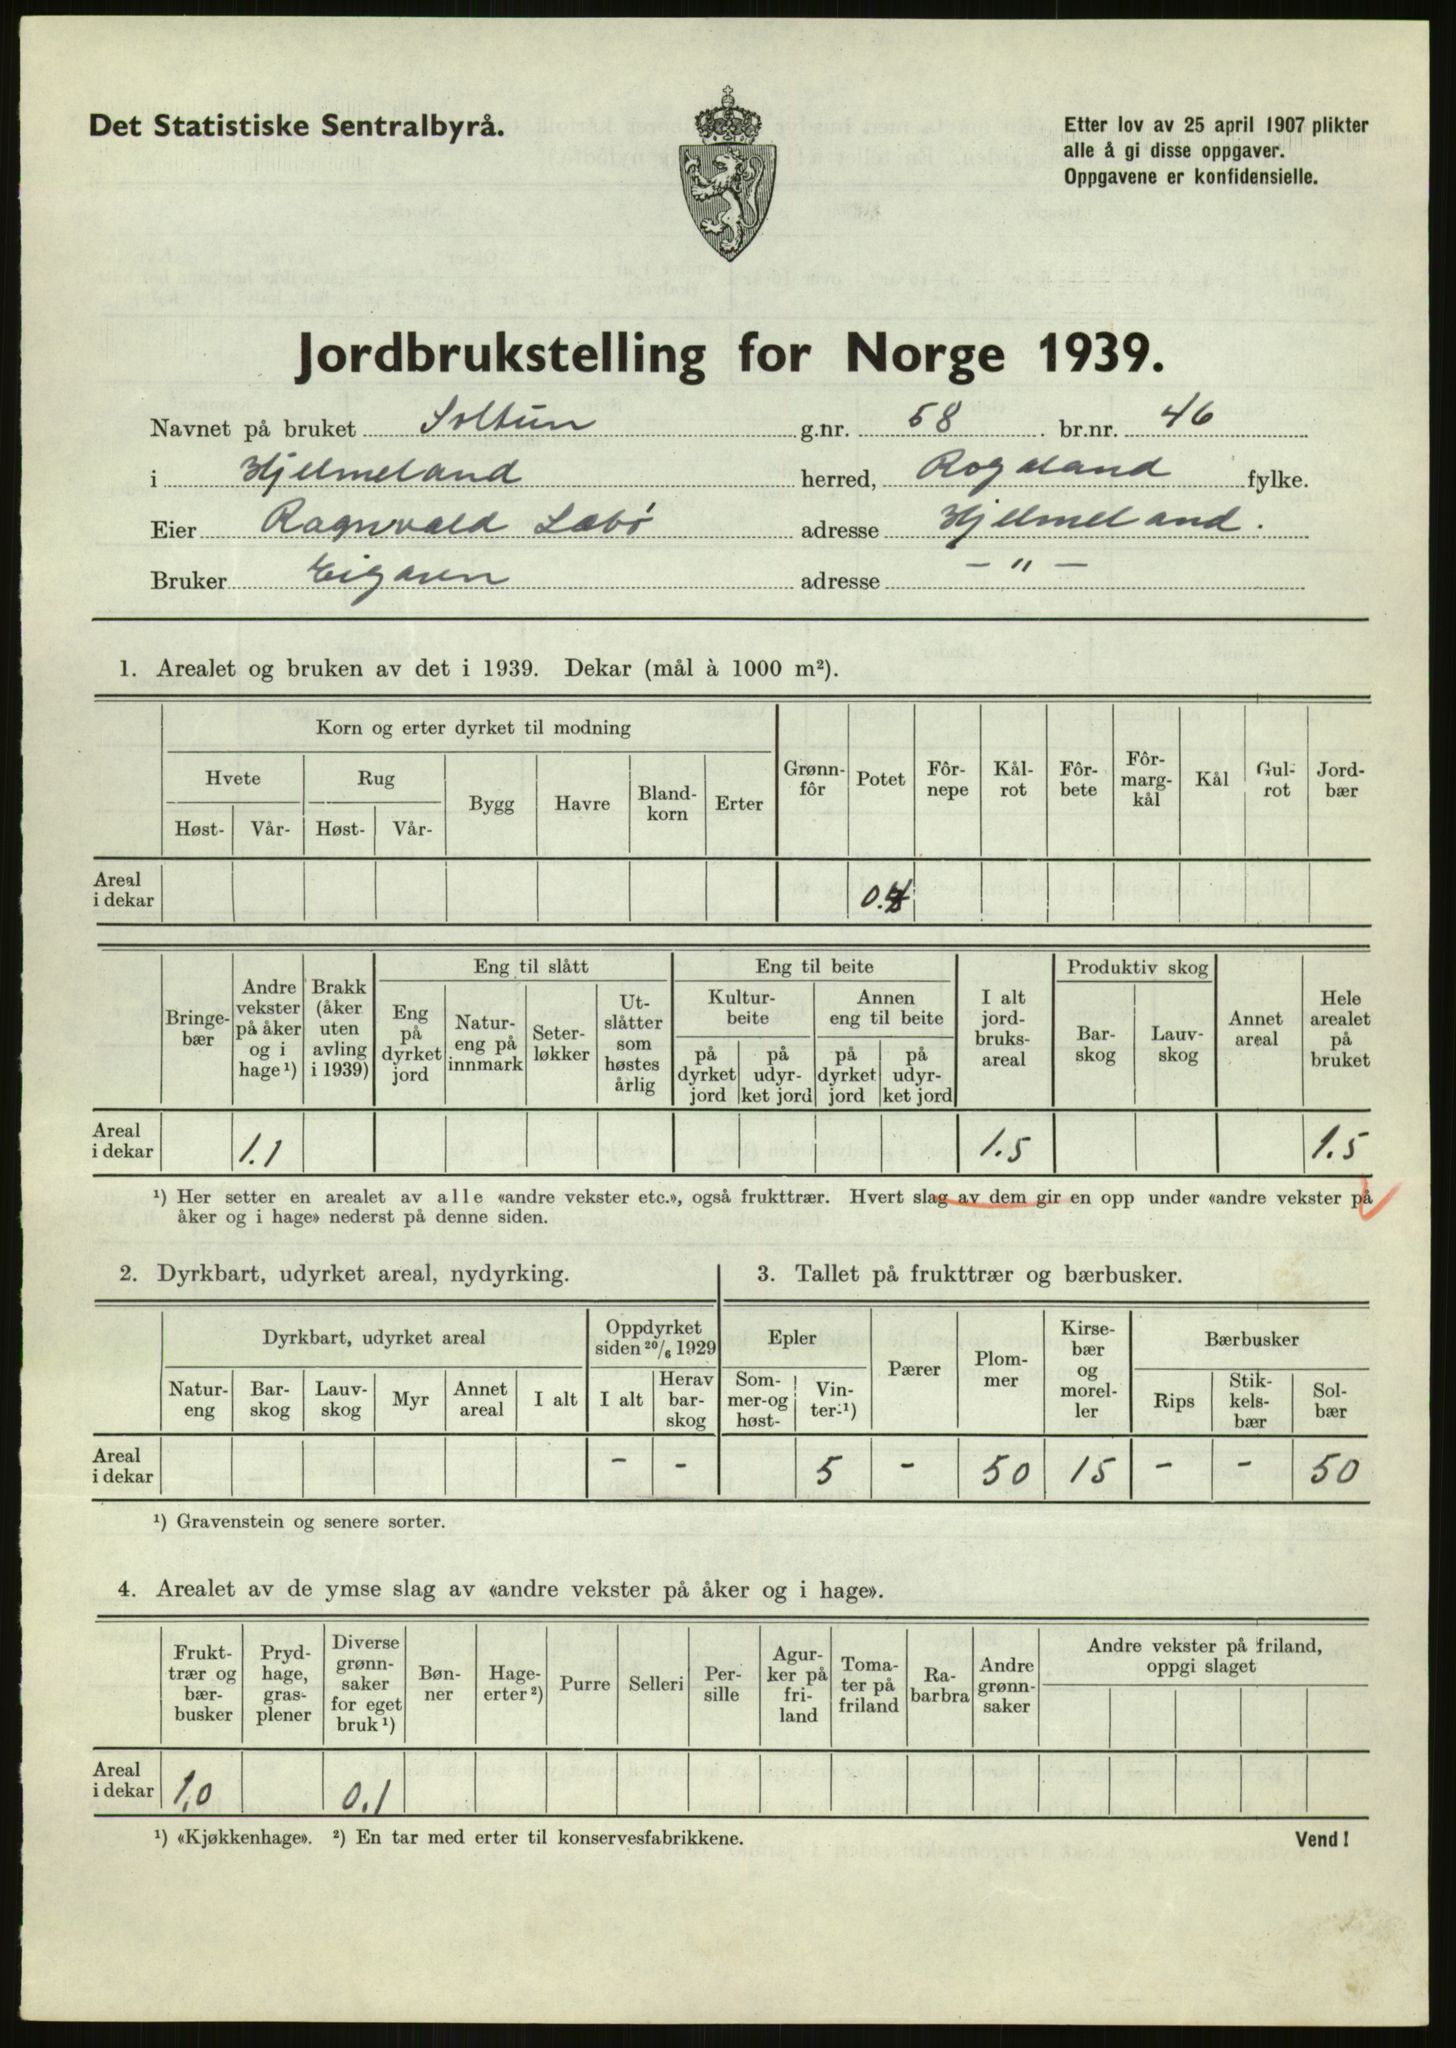 Det Statistiske Sentralbyrå.
Etter lov av 25 april 1907 plikter
alle å gi disse oppgaver.
Oppgavene er konfidensielle.
Jordbrukstelling for Norge 1939.
Navnet på bruket Soltun g.nr. 58 br.nr. 46
i Hjelmeland herred, Rogaland fylke.
Eier Ragnvald Læbö adresse Hjelmeland.
Bruker Eigaren adresse — " —
1. Arealet og bruken av det i 1939. Dekar (mål à 1000 m²).
Korn og erter dyrket til modning
Hvete Rug
Høst- Vår- Høst- Vår-
Bygg Havre Bland-korn Erter
Grønn-fôr Potet Fôr-nepe Kål-rot Fôr-bete Fôr-marg-kål Kål Gul-rot Jord-bær
Areal
i dekar 0.4
Bringe-bær
Andre vekster på åker og i hage ¹)
Brakk (åker uten avling i 1939)
Eng til slått
Eng på dyrket jord
Natur-eng på innmark
Seter-løkker
Ut-slåtter som høstes årlig
Eng til beite
Kultur-beite
på dyrket jord
på udyr-ket jord
Annen eng til beite
på dyrket jord
på udyr-ket jord
I alt jord-bruks-areal
Produktiv skog
Bar-skog
Lauv-skog
Annet areal
Hele arealet på bruket
Areal
i dekar 1.1 1.5 1.5
¹) Her setter en arealet av alle «andre vekster etc.», også frukttrær. Hvert slag av dem gir en opp under «andre vekster på
åker og i hage» nederst på denne siden.
2. Dyrkbart, udyrket areal, nydyrking.
Dyrkbart, udyrket areal
Natur-eng Bar-skog Lauv-skog Myr Annet areal I alt
Oppdyrket siden 20/6 1929
I alt Herav bar-skog
Areal
i dekar - -
3. Tallet på frukttrær og bærbusker.
Epler
Som-mer-og høst- Vin-ter-¹)
Pærer
Plom-mer
Kirse-bær og morel-ler
Bærbusker
Rips Stik-kels-bær Sol-bær
5 - 50 15 - - 50
¹) Gravenstein og senere sorter.
4. Arealet av de ymse slag av «andre vekster på åker og i hage».
Frukt-trær og bær-busker
Pryd-hage, gras-plener
Diverse grønn-saker for eget bruk ¹)
Bøn-ner
Hage-erter ²)
Purre
Selleri
Per-sille
Agur-ker på fri-land
Toma-ter på friland
Ra-barbra
Andre grønn-saker
Andre vekster på friland, oppgi slaget
Areal
i dekar 1,0 0.1
¹) «Kjøkkenhage». ²) En tar med erter til konservesfabrikkene.
Vend!